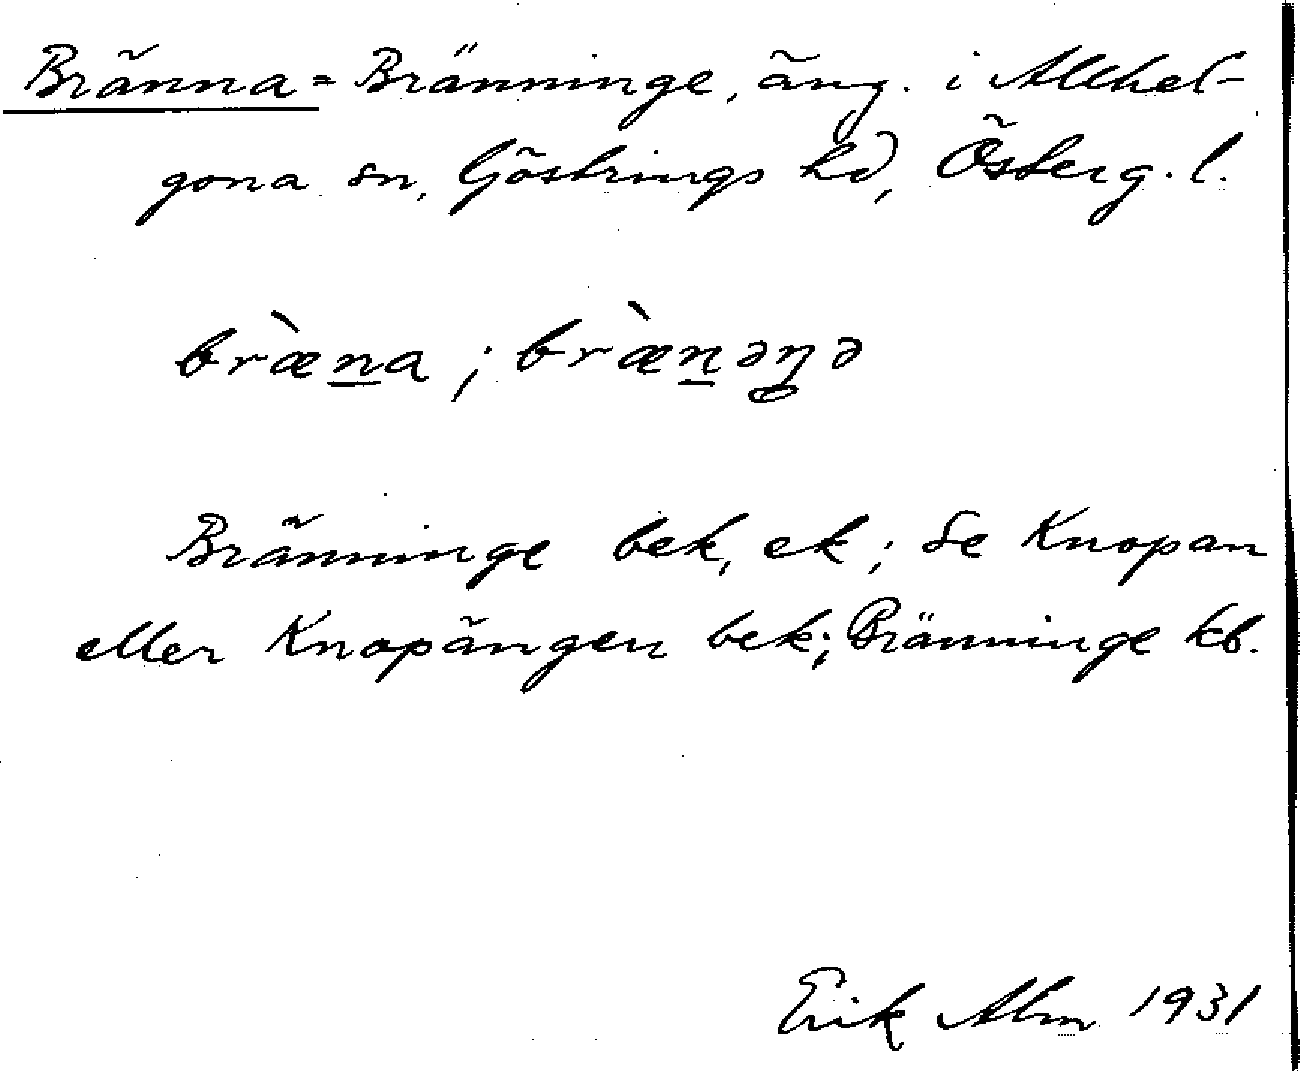 Bränna = Bränninge, äng. i Allhel-
gona sn, Göstrings hd, Österg. l.
bræ̀n̲a ; bræ̀n̲əŋə
Bränninge bek, ek; Se Knopan
eller Knopängen bek; Bränninge kb.
Erik Alm 1931